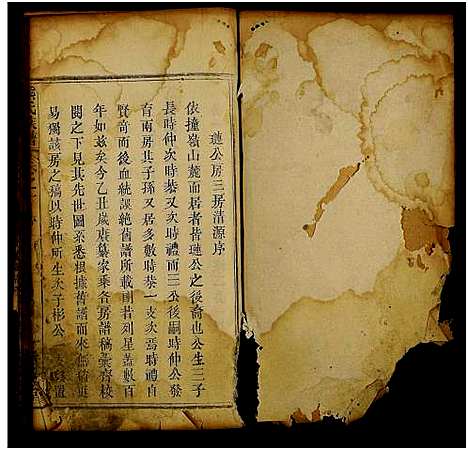 璉公房三房清源序
依撞嶺山麓而居者皆璉公之後裔也公生三子
長時仲次時恭又次時禮而三公後嗣時仲公發
育兩房其子孫又居多數時恭一支次焉時禮自
賢奇而後血統誤絶舊譜所載明若列星蓋數百
年如茲矣今乙丑歲賡纂家乘各房譜稿彙齊校
閱之下見其先世圖系悉根據舊譜而來
易獨該房之稿以時仲所生次子彬公